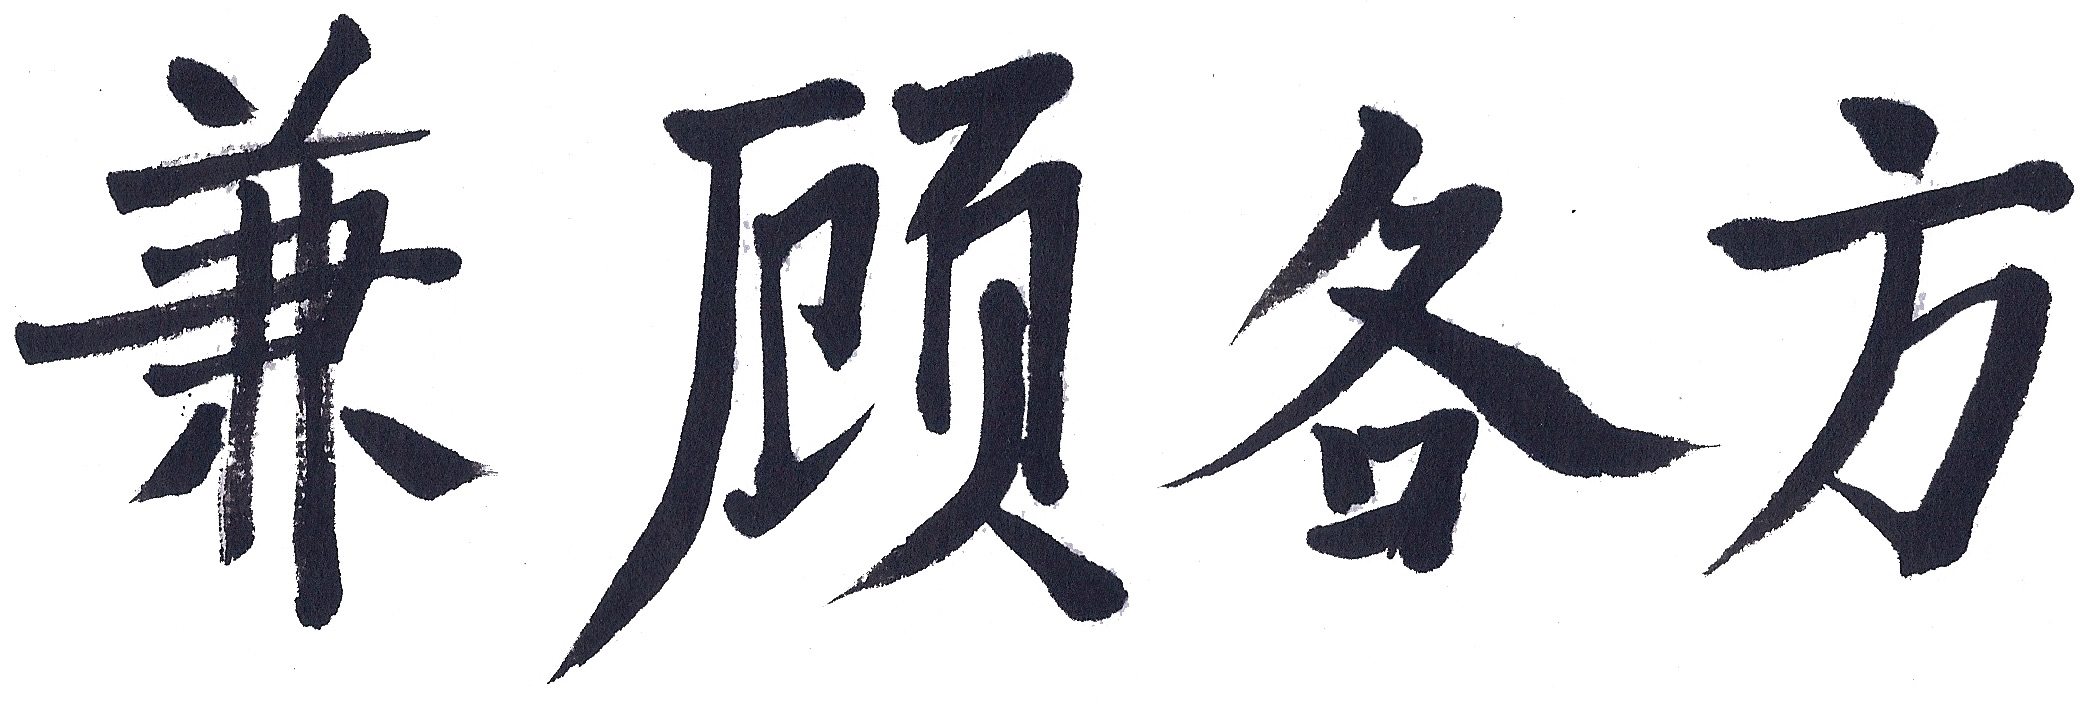 兼顾各方